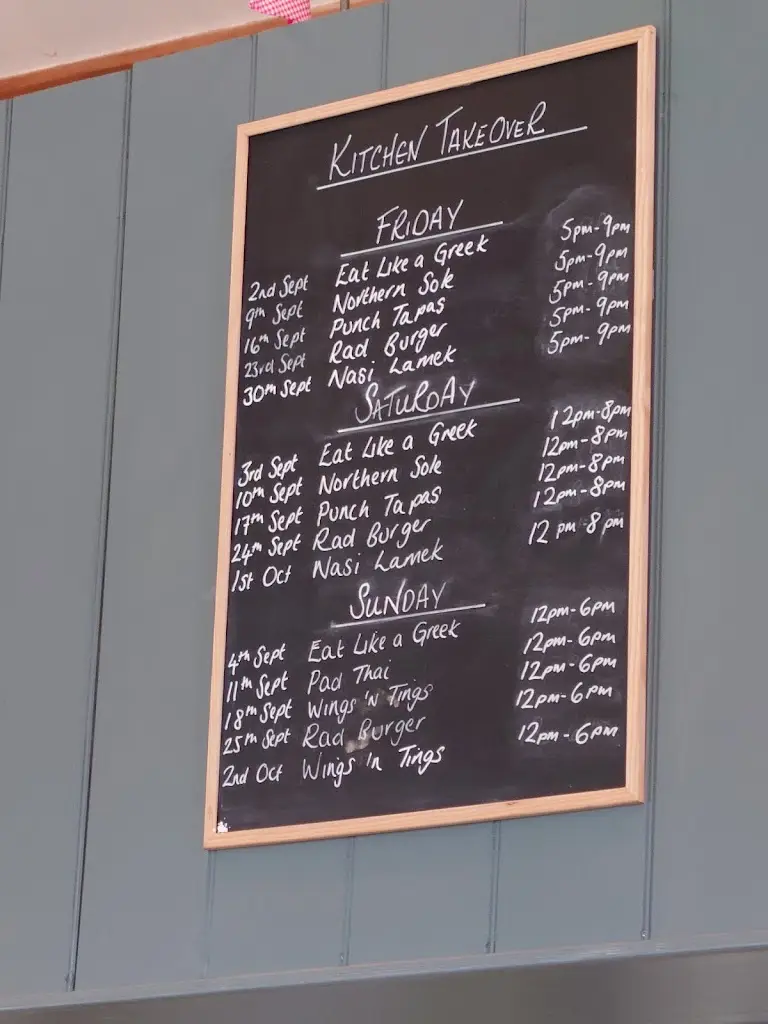 KITCHEN TAKEOVER
FRIDAY
2nd Sept Eat Like a Greek 5pm-9pm
9th Sept Northern Sole 5pm-9pm
16th Sept Punch Tapas 5pm-9pm
23rd Sept Rad Burger 5pm-9pm
30th Sept Nasi Lamek 5pm-9pm
SATURDAY
3rd Sept Eat Like a Greek 12pm-8pm
10th Sept Northern Sole 12pm-8pm
17th Sept Punch Tapas 12pm-8pm
24th Sept Rad Burger 12pm-8pm
1st Oct Nasi Lamek 12pm-8pm
SUNDAY
4th Sept Eat Like a Greek 12pm-6pm
11th Sept Pad Thai 12pm-6pm
18th Sept Wings 'n Tings 12pm-6pm
25th Sept Rad Burger 12pm-6pm
2nd Oct Wings 'n Tings 12pm-6pm